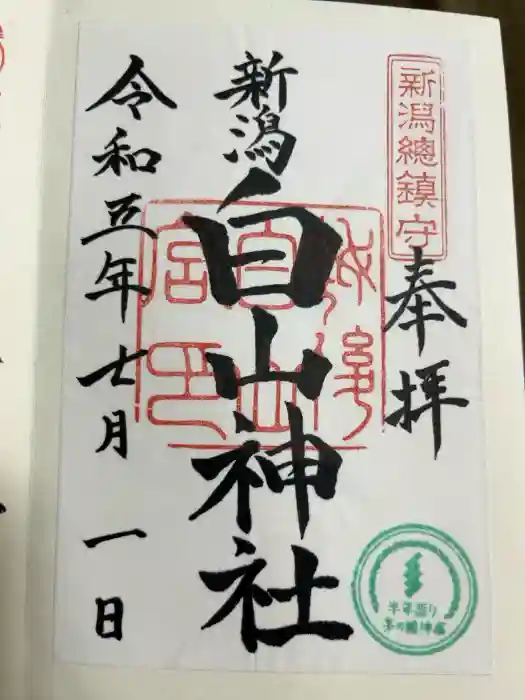 新潟總鎮守
奉拝
新潟
白山神社
令和五年七月一日
半年詣り